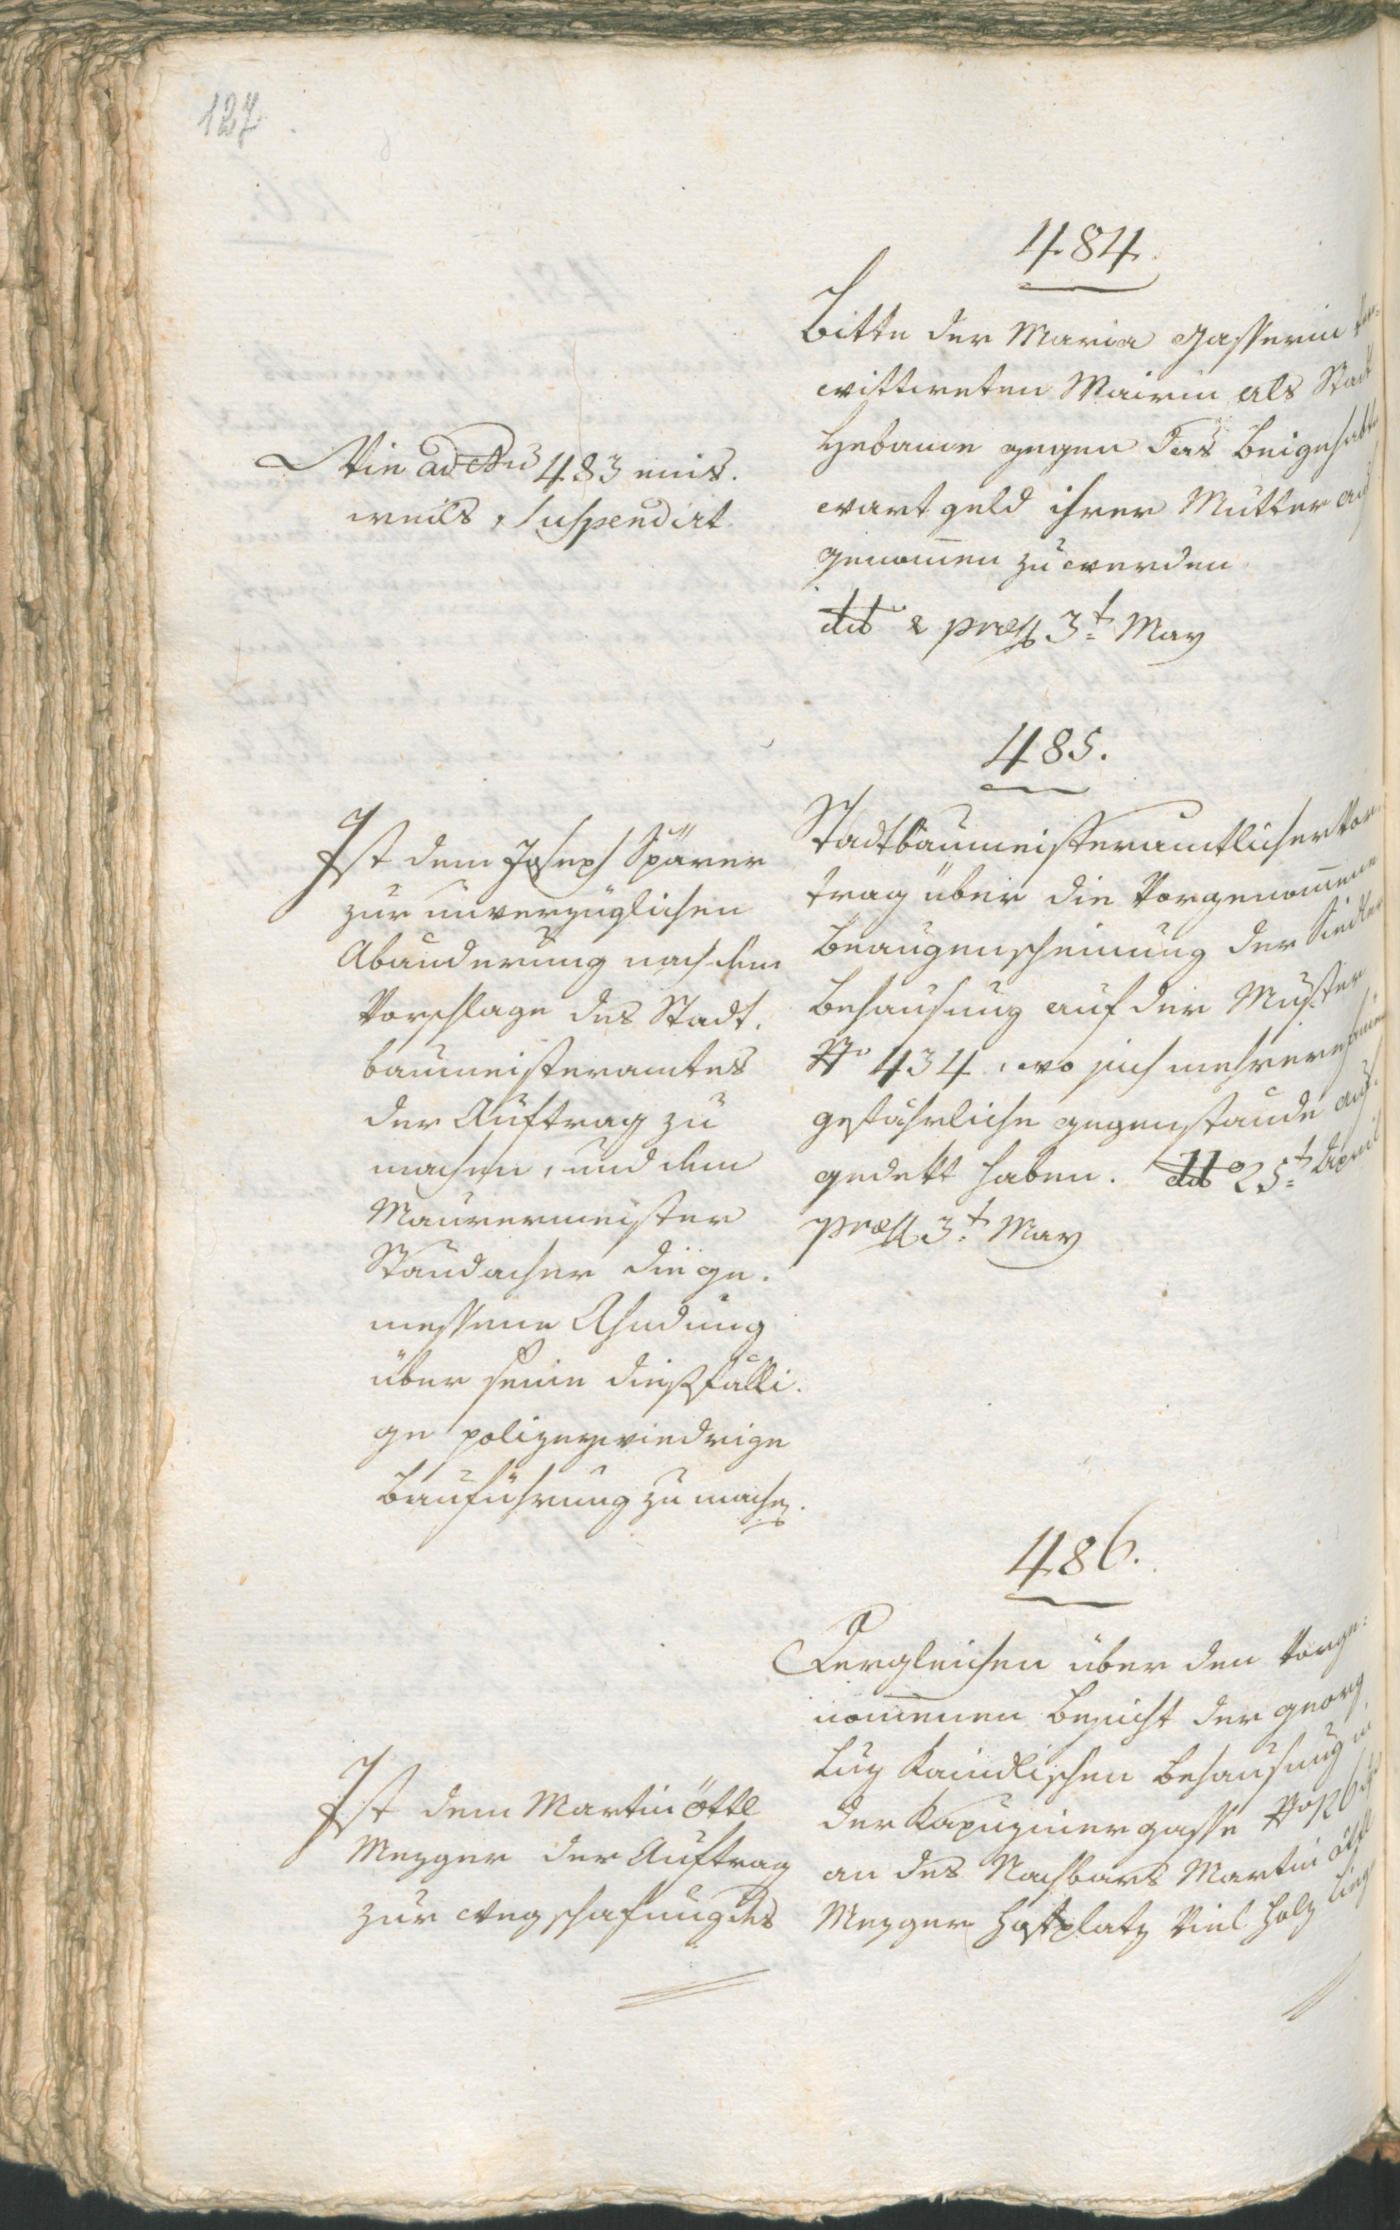 127
484.
Bitte der Maria Gasserin ver¬
wittweten Mairin als Stadt
Hebame gegen das beigehabte
wartgeld ihrer Mutter auf
genom̅en zu werden
dd & præss 3t May
Wie ad Nu̅ 483 einst.
weils suspendirt
485.
Stadtbaumeisteramtlicher Vor
trag über die Vorgenom̅ene
Beaugenscheinung der
Behausung auf der Muster
No 434, wo sich mehrere
gefährliche gegenstände auf
gedekt haben. dd 25t April
præss 3t May
Ist dem Joseph Spärer
zur unverzüglichen
Abänderung nach dem
Vorschlage des Stadt.
baumeisteramtes
der Auftrag zu
machen, und dem
Maurermeister
Staudacher die ge.
messene Ahndung
über seine diesfälli.
ge polizeywiedrige
Bauführung zu machen.
486.
Dergleichen über den Vorge:
nom̅enen Besicht der Georg
Luz Kaindlischen Behausung in
der Kapuzinergasse No
an des Nachbars Martin öttl
Mezger Hofplatz Viel Holz lieg
Ist dem Martin öttl
Mezger der Auftrag
zur wegschafung des